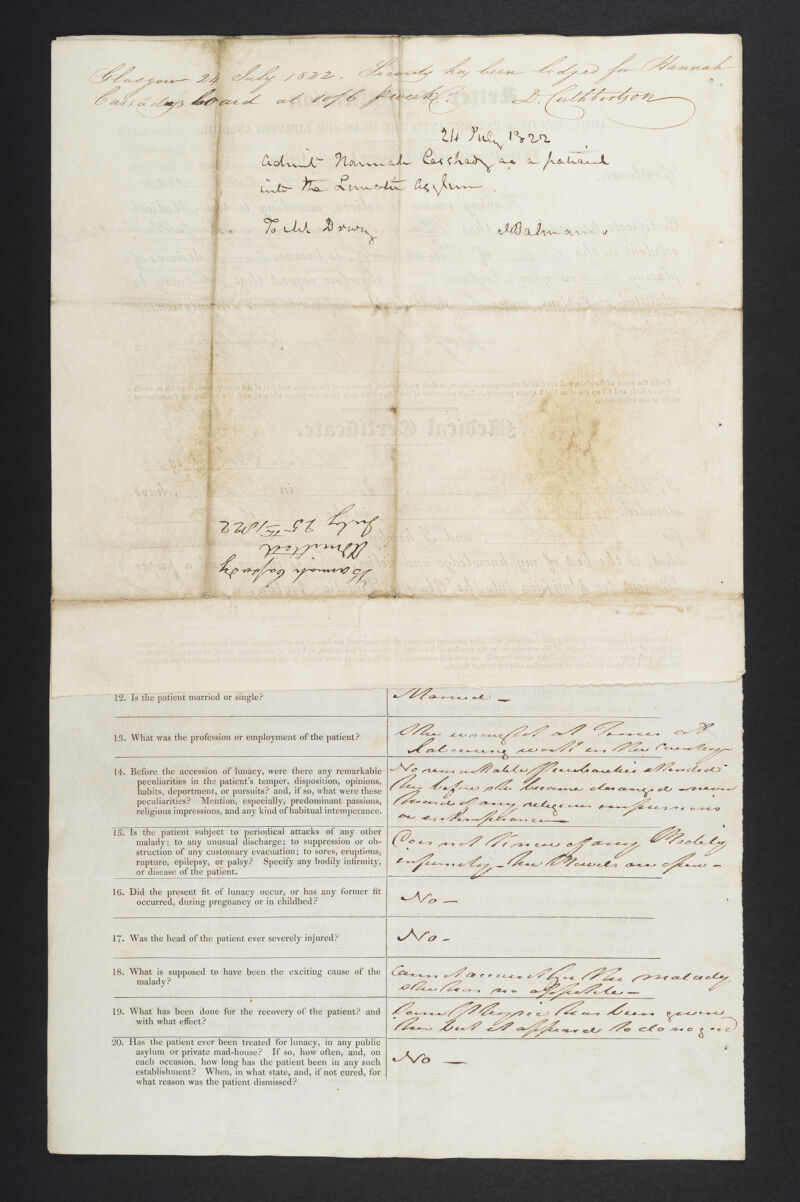 Glasgow 24 July 1822. Security has been lodged for Hannah
Cassadys board at 10/6 p week. D. Cuthbertson
24 July 1822
Admit Hannah Casshady as a patient
into the Lunatic Asylum.
To Mr Drury
Balmanno
Hannah Cassady
Admitted
July 25th 1822
Medical Certificate.
12. Is the patient married or single?
Married —
13. What was the profession or employment of the patient?
She wrought at Times at
Labouring work in the Country
14. Before the accession of lunacy, were there any remarkable
peculiarities in the patient's temper, disposition, opinions,
habits, deportment, or pursuits? and, if so, what were these
peculiarities? Mention, especially, predominant passions,
religious impressions, and any kind of habitual intemperance.
No remarkable Peculiarities attended
her before she became deranged – never
heard of any religious impressions
or intemperance —
15. Is the patient subject to periodical attacks of any other
malady; to any unusual discharge; to suppression or ob-
struction of any customary evacuation; to sores, eruptions,
rupture, epilepsy, or palsy? Specify any bodily infirmity,
or disease of the patient.
Does not know of any Bodily
infirmity – her Bowels are open –
16. Did the present fit of lunacy occur, or has any former fit
occurred, during pregnancy or in childbed?
No —
17. Was the head of the patient ever severely injured?
No –
18. What is supposed to have been the exciting cause of the
malady?
Cannot account for the malady
she has no appetite —
19. What has been done for the recovery of the patient? and
with what effect?
Some Physic has been given
her but it appeared to do no good
20. Has the patient ever been treated for lunacy, in any public
asylum or private mad-house? If so, how often, and, on
each occasion, how long has the patient been in any such
establishment? When, in what state, and, if not cured, for
what reason was the patient dismissed?
No —